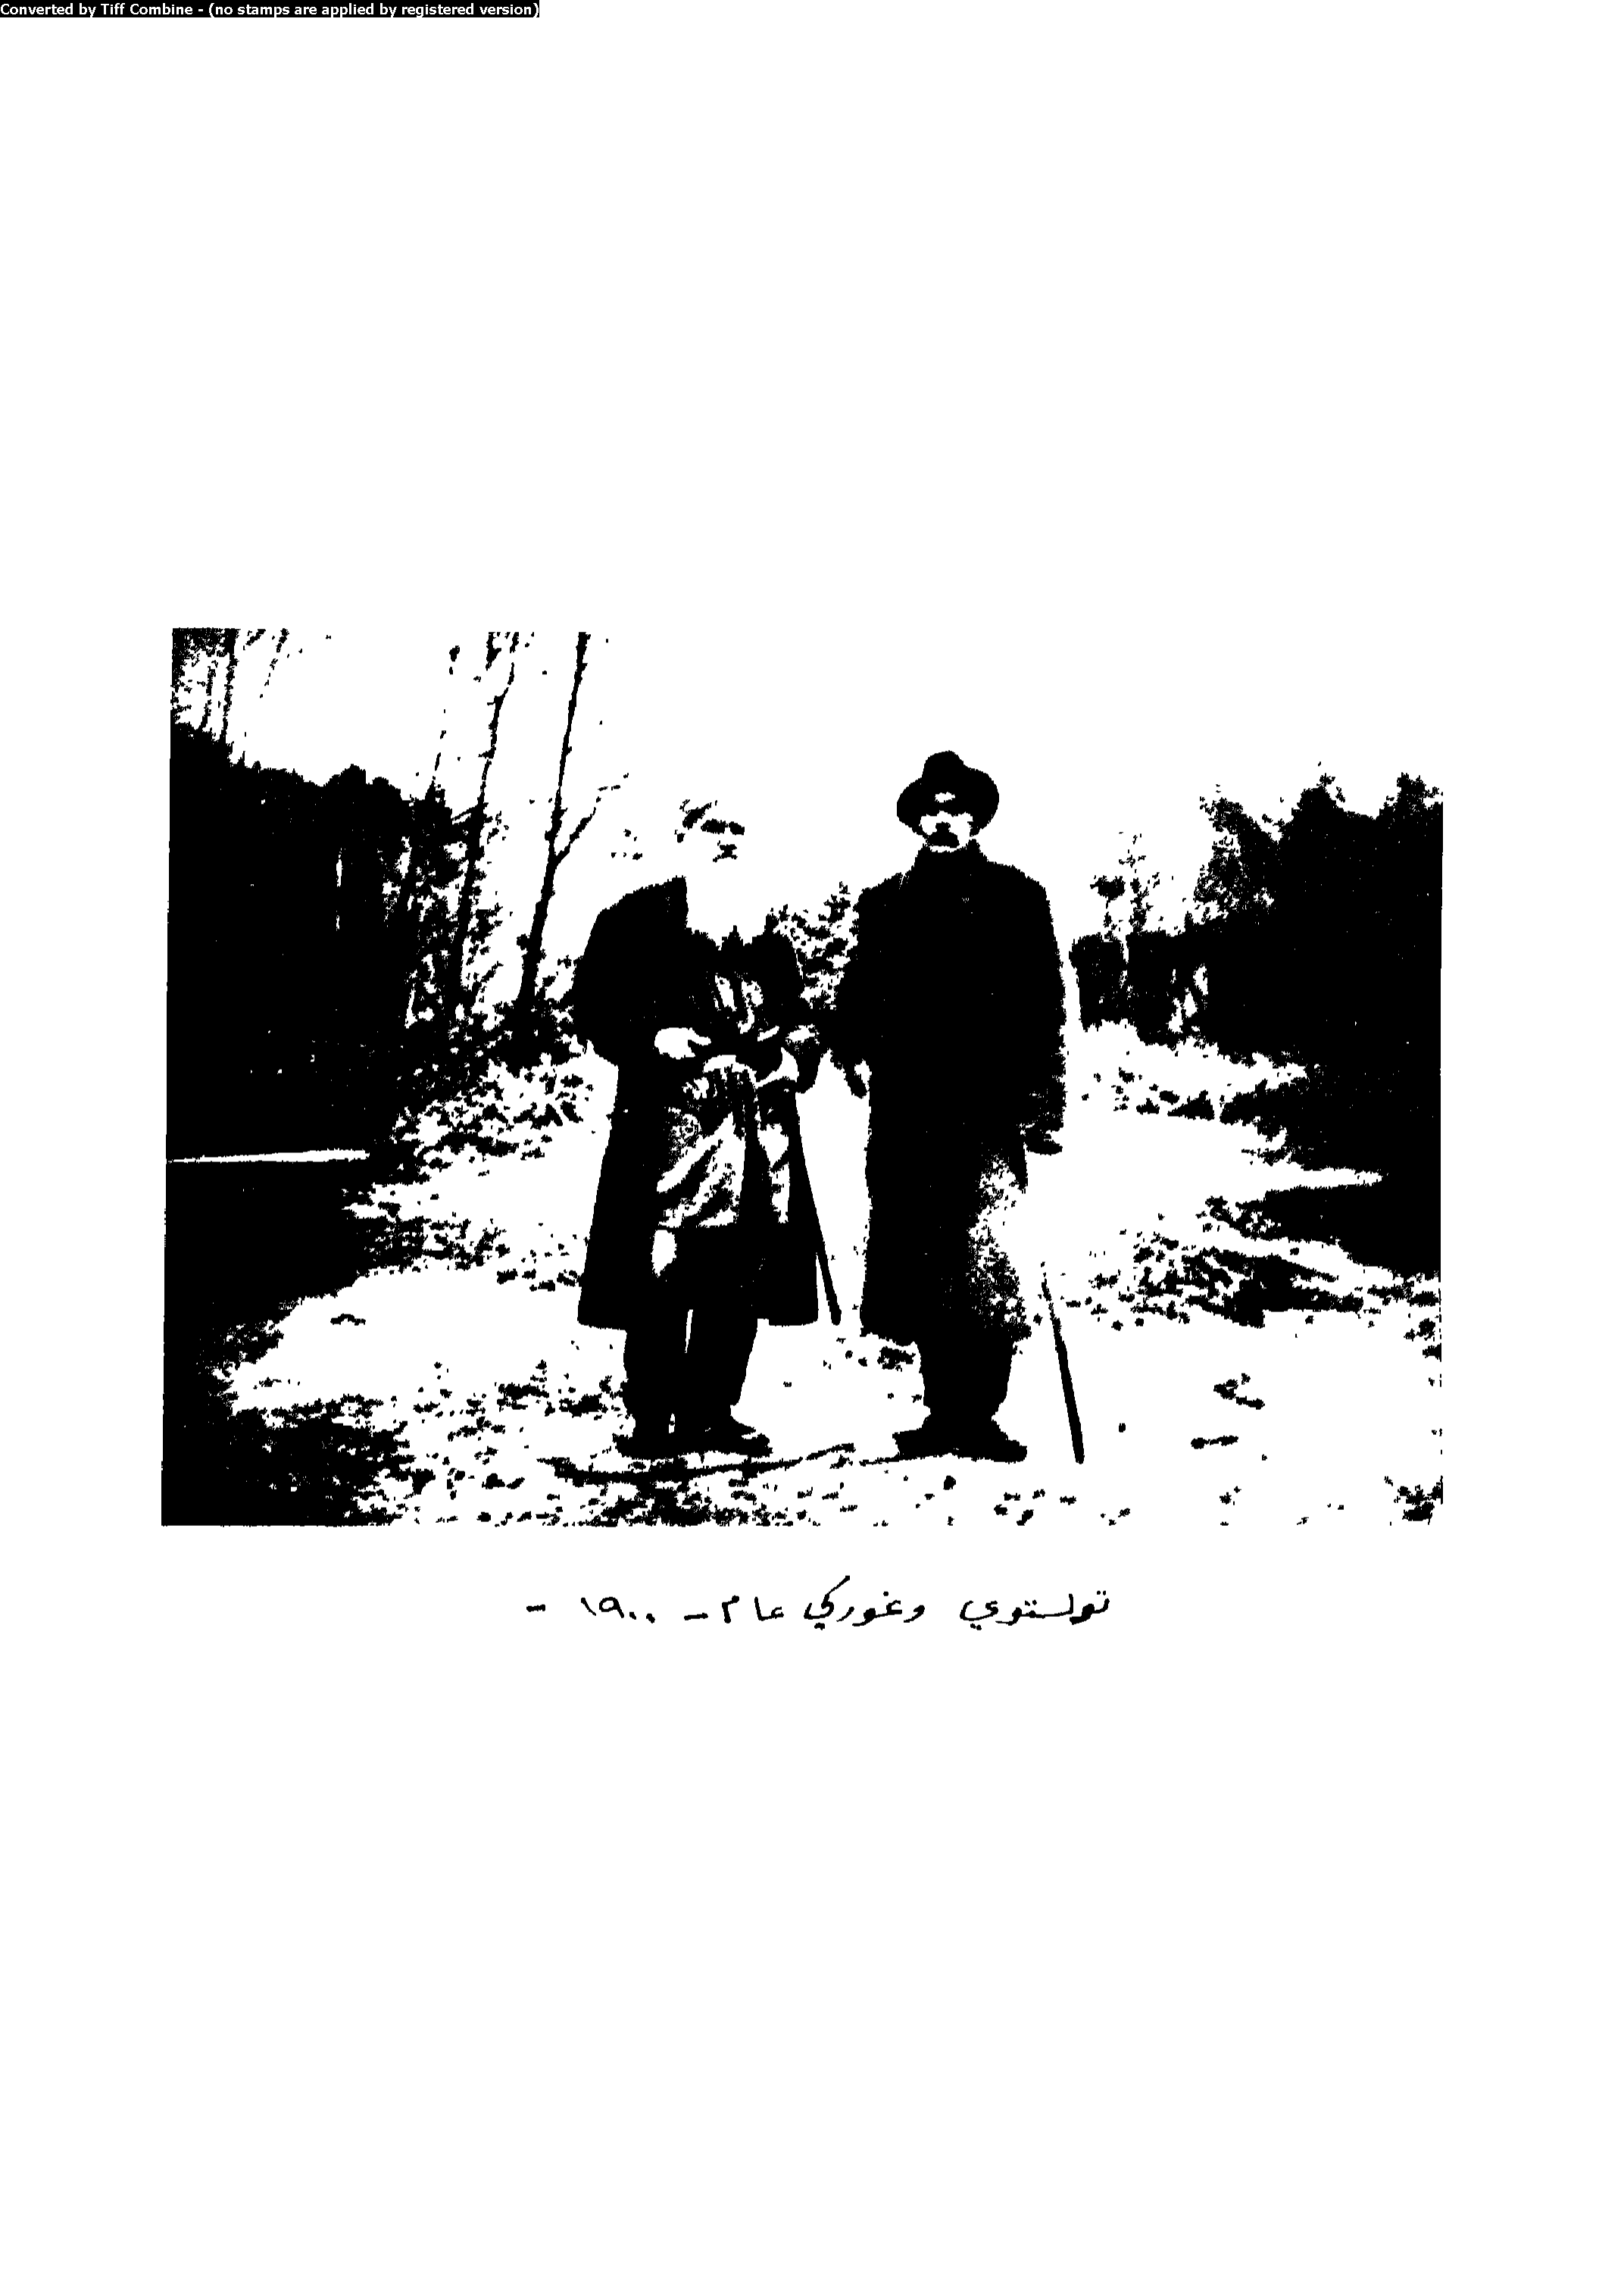 Converted by Tiff Combine - (no stamps are applied by registered version)
تولستوي وغوركي عام - ١٩٠٠ -